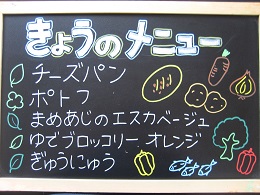 きょうのメニュー
チーズパン
ポトフ
まめあじのエスカベージュ
ゆでブロッコリー オレンジ
ぎゅうにゅう